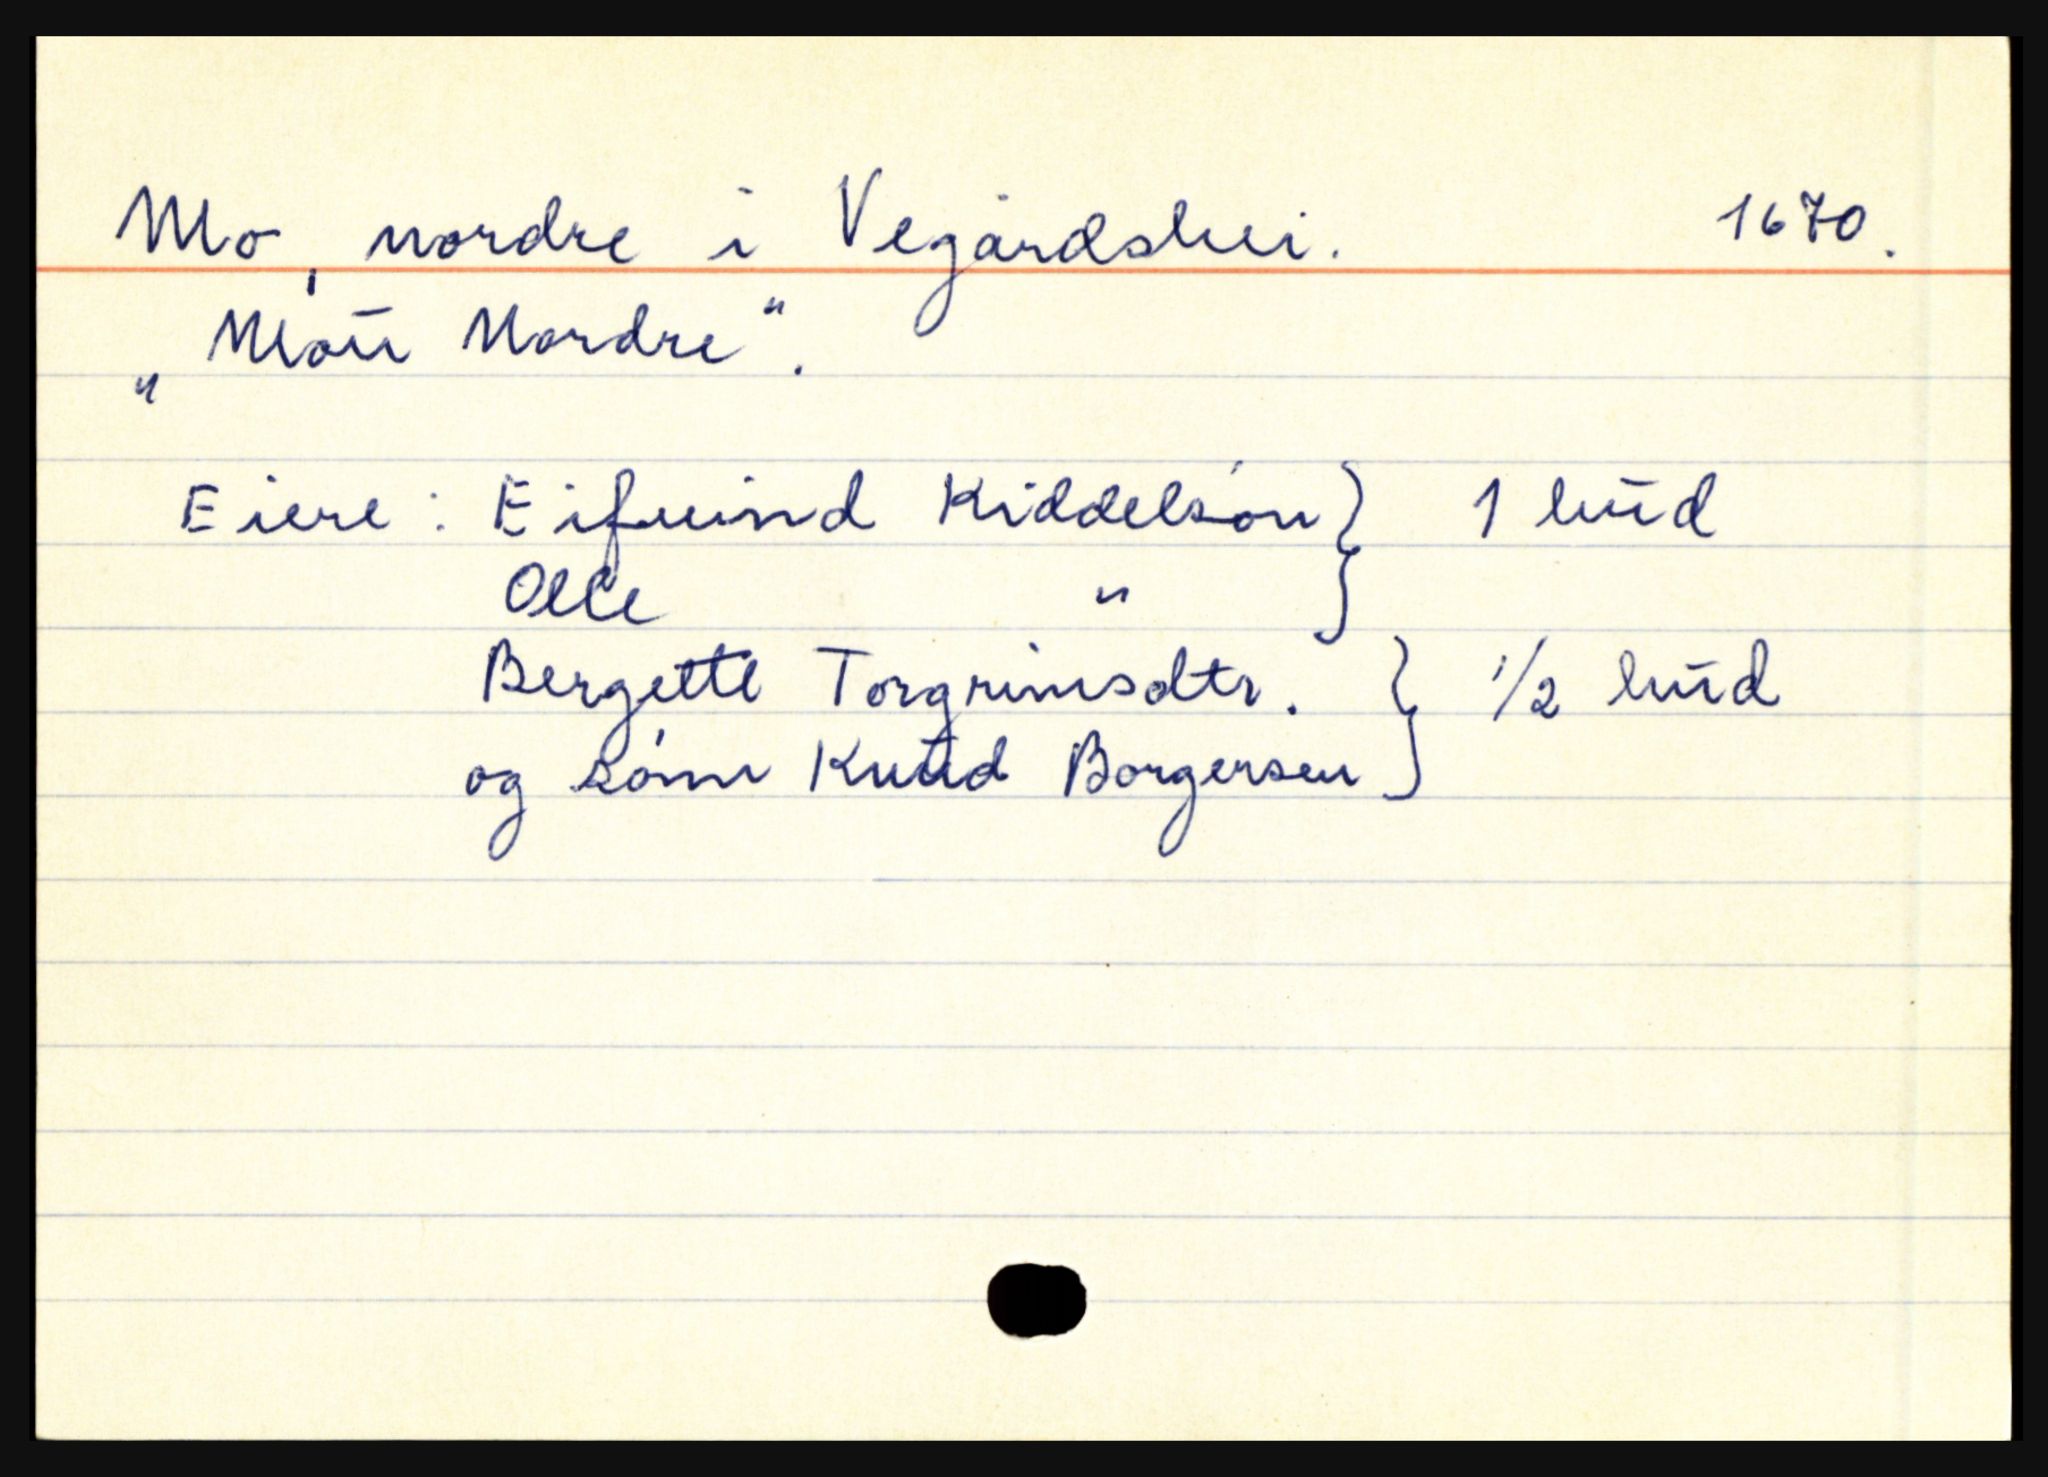 Mo, nordre i Vegårdshei. 1670.
„Moū Nordre“.
Eiere: Eifuind Kiddelsón } 1 hūd
Olle " }
Bergette Torgrimsdtr. } 1/2 hūd
og sónn Knūd Borgersen }